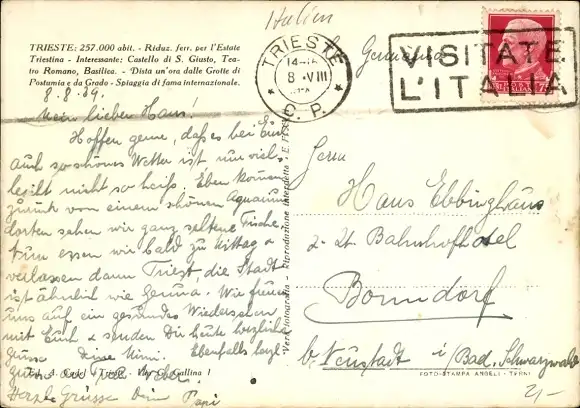 Italien
TRIESTE: 257.000 abit. - Riduz. ferr. per l'Estate
Triestina - Interessante: Castello di S. Giusto, Tea-
tro Romano, Basilica. - Dista un'ora dalle Grotte di
Postumia e da Grado - Spiaggia di fama internazionale.
TRIESTE
8 VIII
C. P.
Germania
VISITATE
L'ITALIA
8.8.39.
Mein lieber Hans!
Hoffen gerne, daß es bei Euch
auch so schönes Wetter ist nur viel-
leicht nicht so heiß. Eben kommen
zurück von einem schönen Aquarium
dorten sahen wir ganz seltene Fische.
Nun essen wir bald zu Mittag &
verlassen dann Triest, die Stadt
ist ähnlich wie Genua. Wir freuen
uns auf ein gesundes Wiedersehen
mit Euch & senden Dir heute herzliche
Grüsse Deine Mimi. Ebenfalls herzl.
Herzl. Grüsse Dein Papi
Vera Fotografia - Riproduzione interdetta
Herrn
Hans Ebbinghaus
z. Zt. Bahnhofhotel
Bonndorf
b. Neustadt i/Bad. Schwarzwald
Gallina 1
FOTO-STAMPA ANGELI - TERNI
2,-